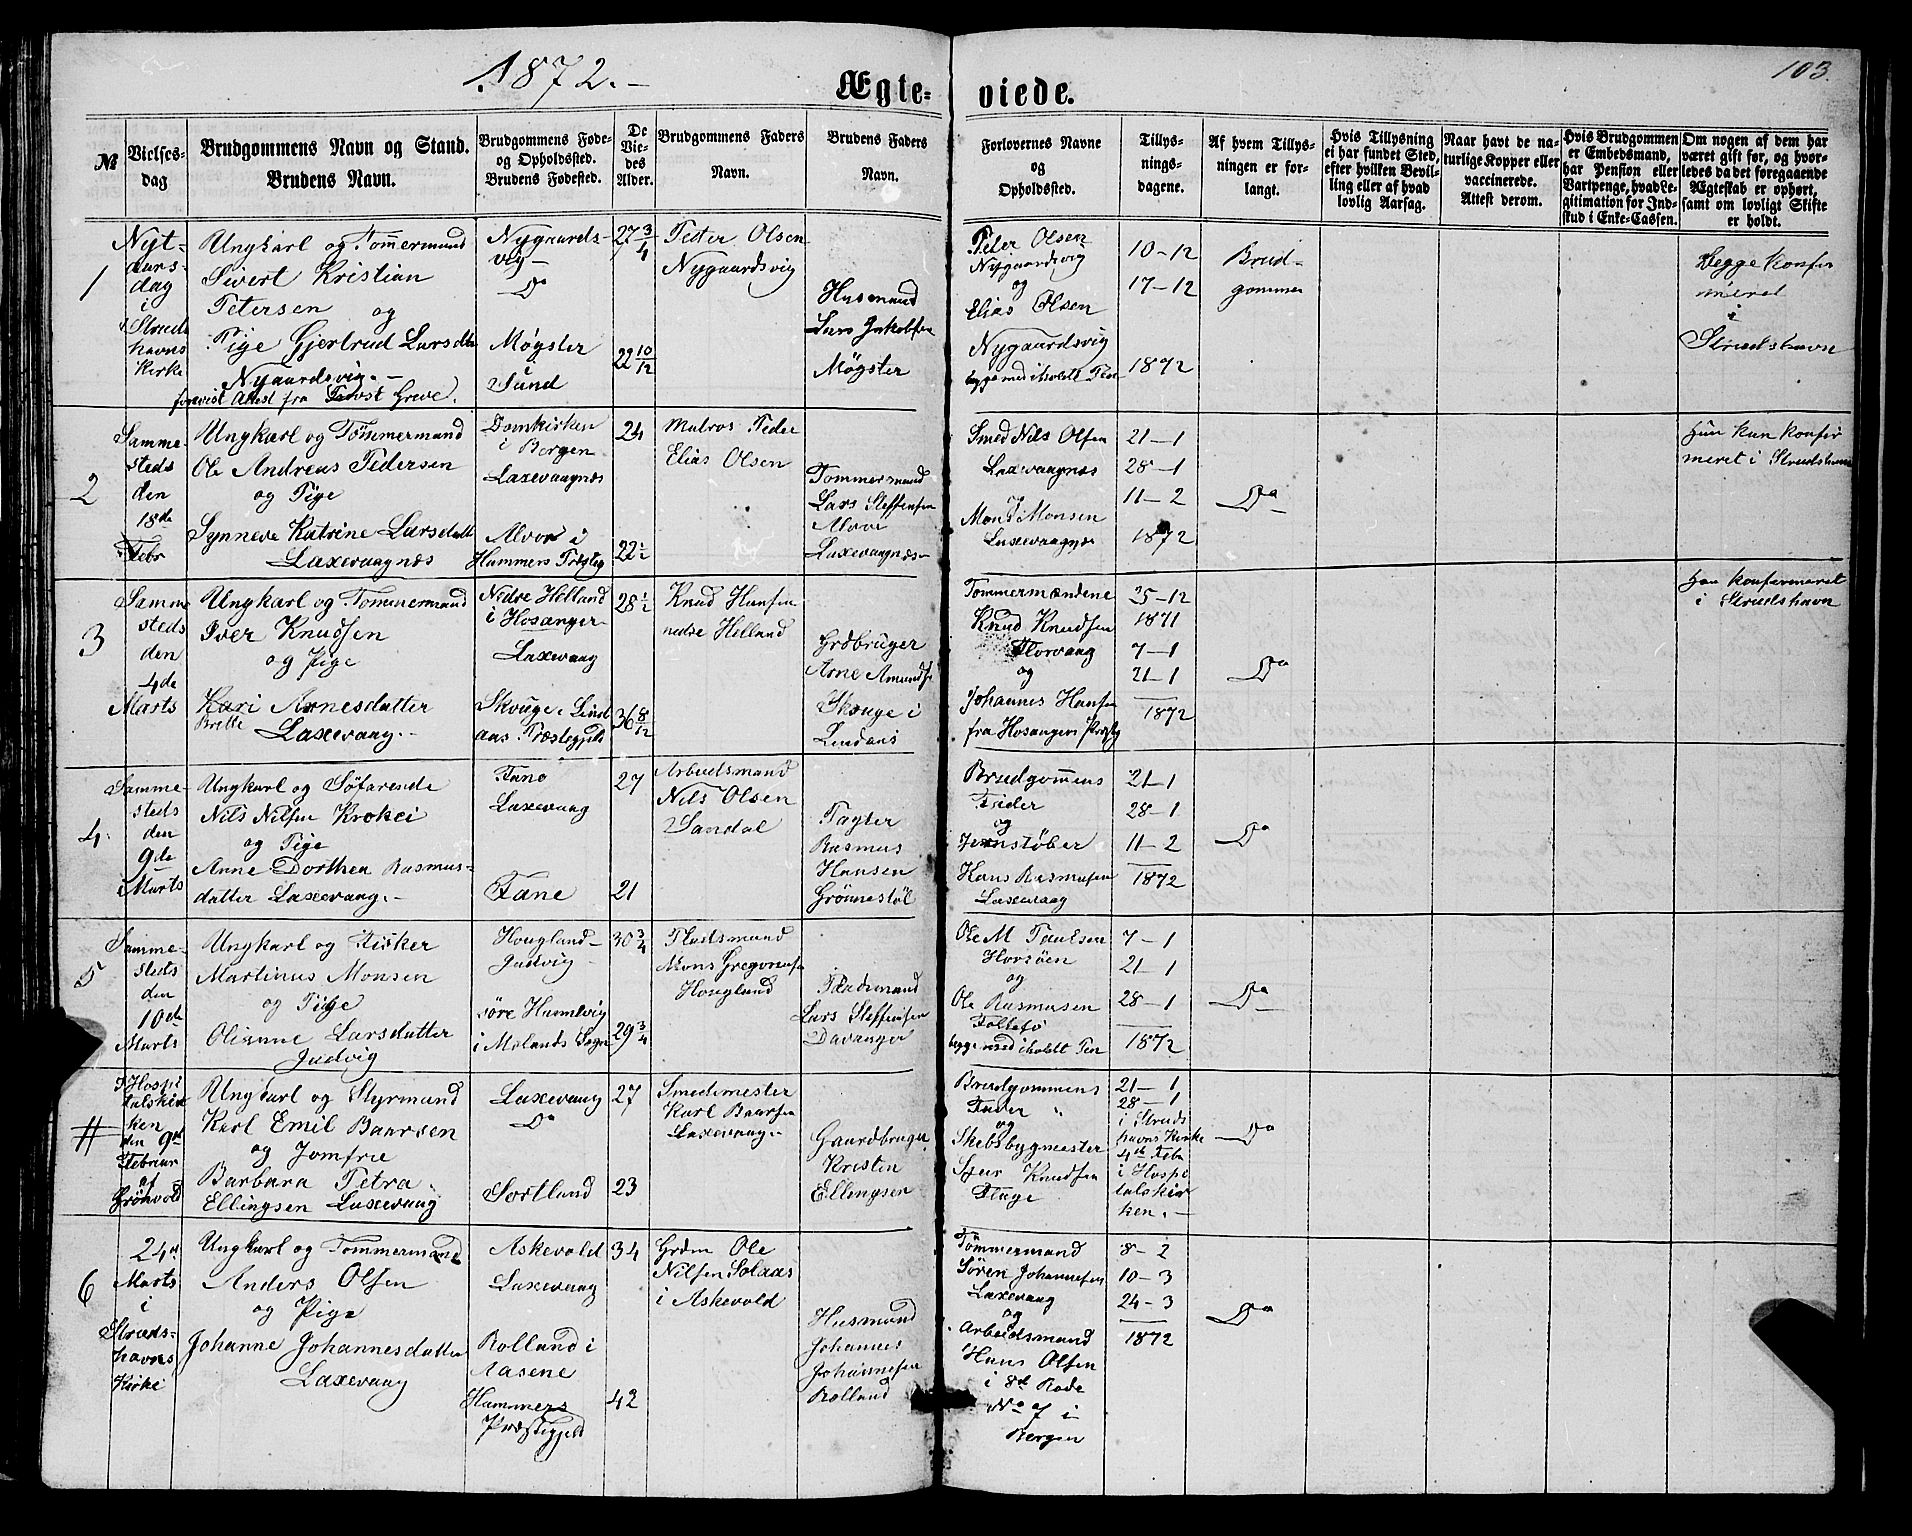 1872.-
103.
Ægte=
viede.
№
Vielses-
dag
Brudgommens Navn og Stand.
Brudens Navn.
Brudgommens Føde-
og Opholdssted.
Brudens Fødested.
De
Vie-
des
Alder.
Brudgommens Faders
Navn.
Brudens Faders
Navn.
Forlovernes Navne
og
Opholdssted.
Tillys-
nings-
dagene.
Af hvem Tillys-
ningen er for-
langt.
Hvis Tillysning
ei har fundet Sted,
efter hvilken Bevil-
ling eller af hvad
lovlig Aarsag.
Naar havt de na-
turlige Kopper eller
vaccinerede.
Attest derom.
Hvis Brudgommen
er Embedsmand,
har Pension eller
Vartpenge, hvad Le-
gitimation for Ind-
skud i Enke-Cassen.
Om nogen af dem har
været gift før, og hvor-
ledes da det foregaaende
Ægteskab er ophørt,
samt om lovligt Skifte
er holdt.
1
Nyt-
aars-
dag
i
Struds
havns
Kirke
Ungkarl og Tømmermand
Sivert Kristian
Petersen og
Pige Gjertrud Larsdtr
Nygaardsvig.-
forevist Attest fra Provst Greve.
Nygaards-
vig-
Do
Møgster
Sund
27 3/4
22 10/12
Petter Olsen
Nygaardsvig
Husmand
Lars Jakobsen
Møgster
Peter Olsen
Nygaardsvig
og
Elias Olsen
Nygaardsvig
begge med iholdt Pen
10-12
17-12
1872
Brud-
gommen
Begge konfir
meret
i
Strudshavn
2
Samme
steds
den
18de
Febr
Ungkarl og Tømmermand
Ole Andreas Pedersen
og Pige
Synneve Katrine Larsdatt
Laxevaagnæs
Domkirken
i Bergen
Laxevaagnæs
Alvøe i
Hammers Præsteg
24
22 1/2
Matros Peder
Elias Olsen
Tømmermand
Lars Steffensen
Alvøe
Laxevaagnæs-
Smed Nils Olsen
Laxevaagnæs
Mons Monsen
Laxevaagnæs
21-1
28-1
11-2
1872
Do
Hun kun konfir
meret i Strudshavn
3
Samme
steds
den
4de
Marts
Ungkarl og Tømmermand
Iver Knudsen
og Pige
Kari Arnesdatter
Britte
Laxevaag.-
Nedre Helland
i Hosanger
Laxevaag
Skouge i Lind
aas Præstegjeld
28 1/2
36 8/12
Knud Hansen
nedre Helland
Grdbruger
Arne Amunds
Skouge i
Lindaas
Tømmermændene
Knud Knudsen
Florvaag
og
Johannes Hansen
fra Hosangers Præsteg
25-12
1871
7-1
21-1
1872
Do
Han konfirmeret
i Strudshavn
4.
Samme-
steds
den
9de
Marts
Ungkarl og Søfarende
Nils Nilsen Krokei
og Pige
Anne Dorthea Rasmus-
datter Laxevaag.-
Fane
Laxevaag
Fane
27
21
Arbeidsmand
Nils Olsen
Sandal
Pagter
Rasmus
Hansen
Grønnestøl
Brudgommens
Fader
og
Jernstøber
Hans Rasmusen
Laxevaag
21-1
28-1
11-2
1872
Do
5
Samme-
steds
den
10de
Marts
Ungkarl og Fisker
Martinus Monsen
og Pige
Olianne Larsdatter
Judvig
Hougland-
Judvig-
søre Hamlevig
i Mølands Sogn
30 3/4
29 3/4
Pladsmand
Mons Gregoriusen
Hougland
Pladsmand
Lars Steffensen
Davanger
Ole M Paulsen
Horsøen
og
Ole Rasmusen
Follesø
begge med iholdt Pen
7-1
21-1
28-1
1872
Do
#
I Hospi
talskir
ken
den 9de
Februar
af
Grønvold
Ungkarl og Styrmand
Karl Emil Baarsen
og Jomfru
Barbara Petra
Ellingsen Laxevaag
Laxevaag
Do
Sortland
27
23
Smedmester
Karl Baarsen
Laxevaag.-
Gaardbruger
Kristen
Ellingsen
Brudgommens
Fader
og
Skibsbygmester
Sjur Knudsen
Stage
21-1
28-1
i Struds
havns Kirke
4de Febr
i Hospi
talskir
ken.-
Do
6
24de
Marts
i
Struds-
havns
Kirke
Ungkarl og Tømmermand
Anders Olsen
og Pige
Johanne Johannesdatter
Laxevaag
Askevold
Laxevaag
Rolland i
Aasene
Hammers
Præstegjeld
34
42
Grdm Ole
Nilsen Solaas
i Askevold
Husmand
Johannes
Johannesen
Rolland
Tømmermand
Søren Johannesen
Laxevaag
og
Arbeidsmand
Hans Olsen
i 8de Rode
No 7 i
Bergen
8-2
10-3
24-3
1872
Do